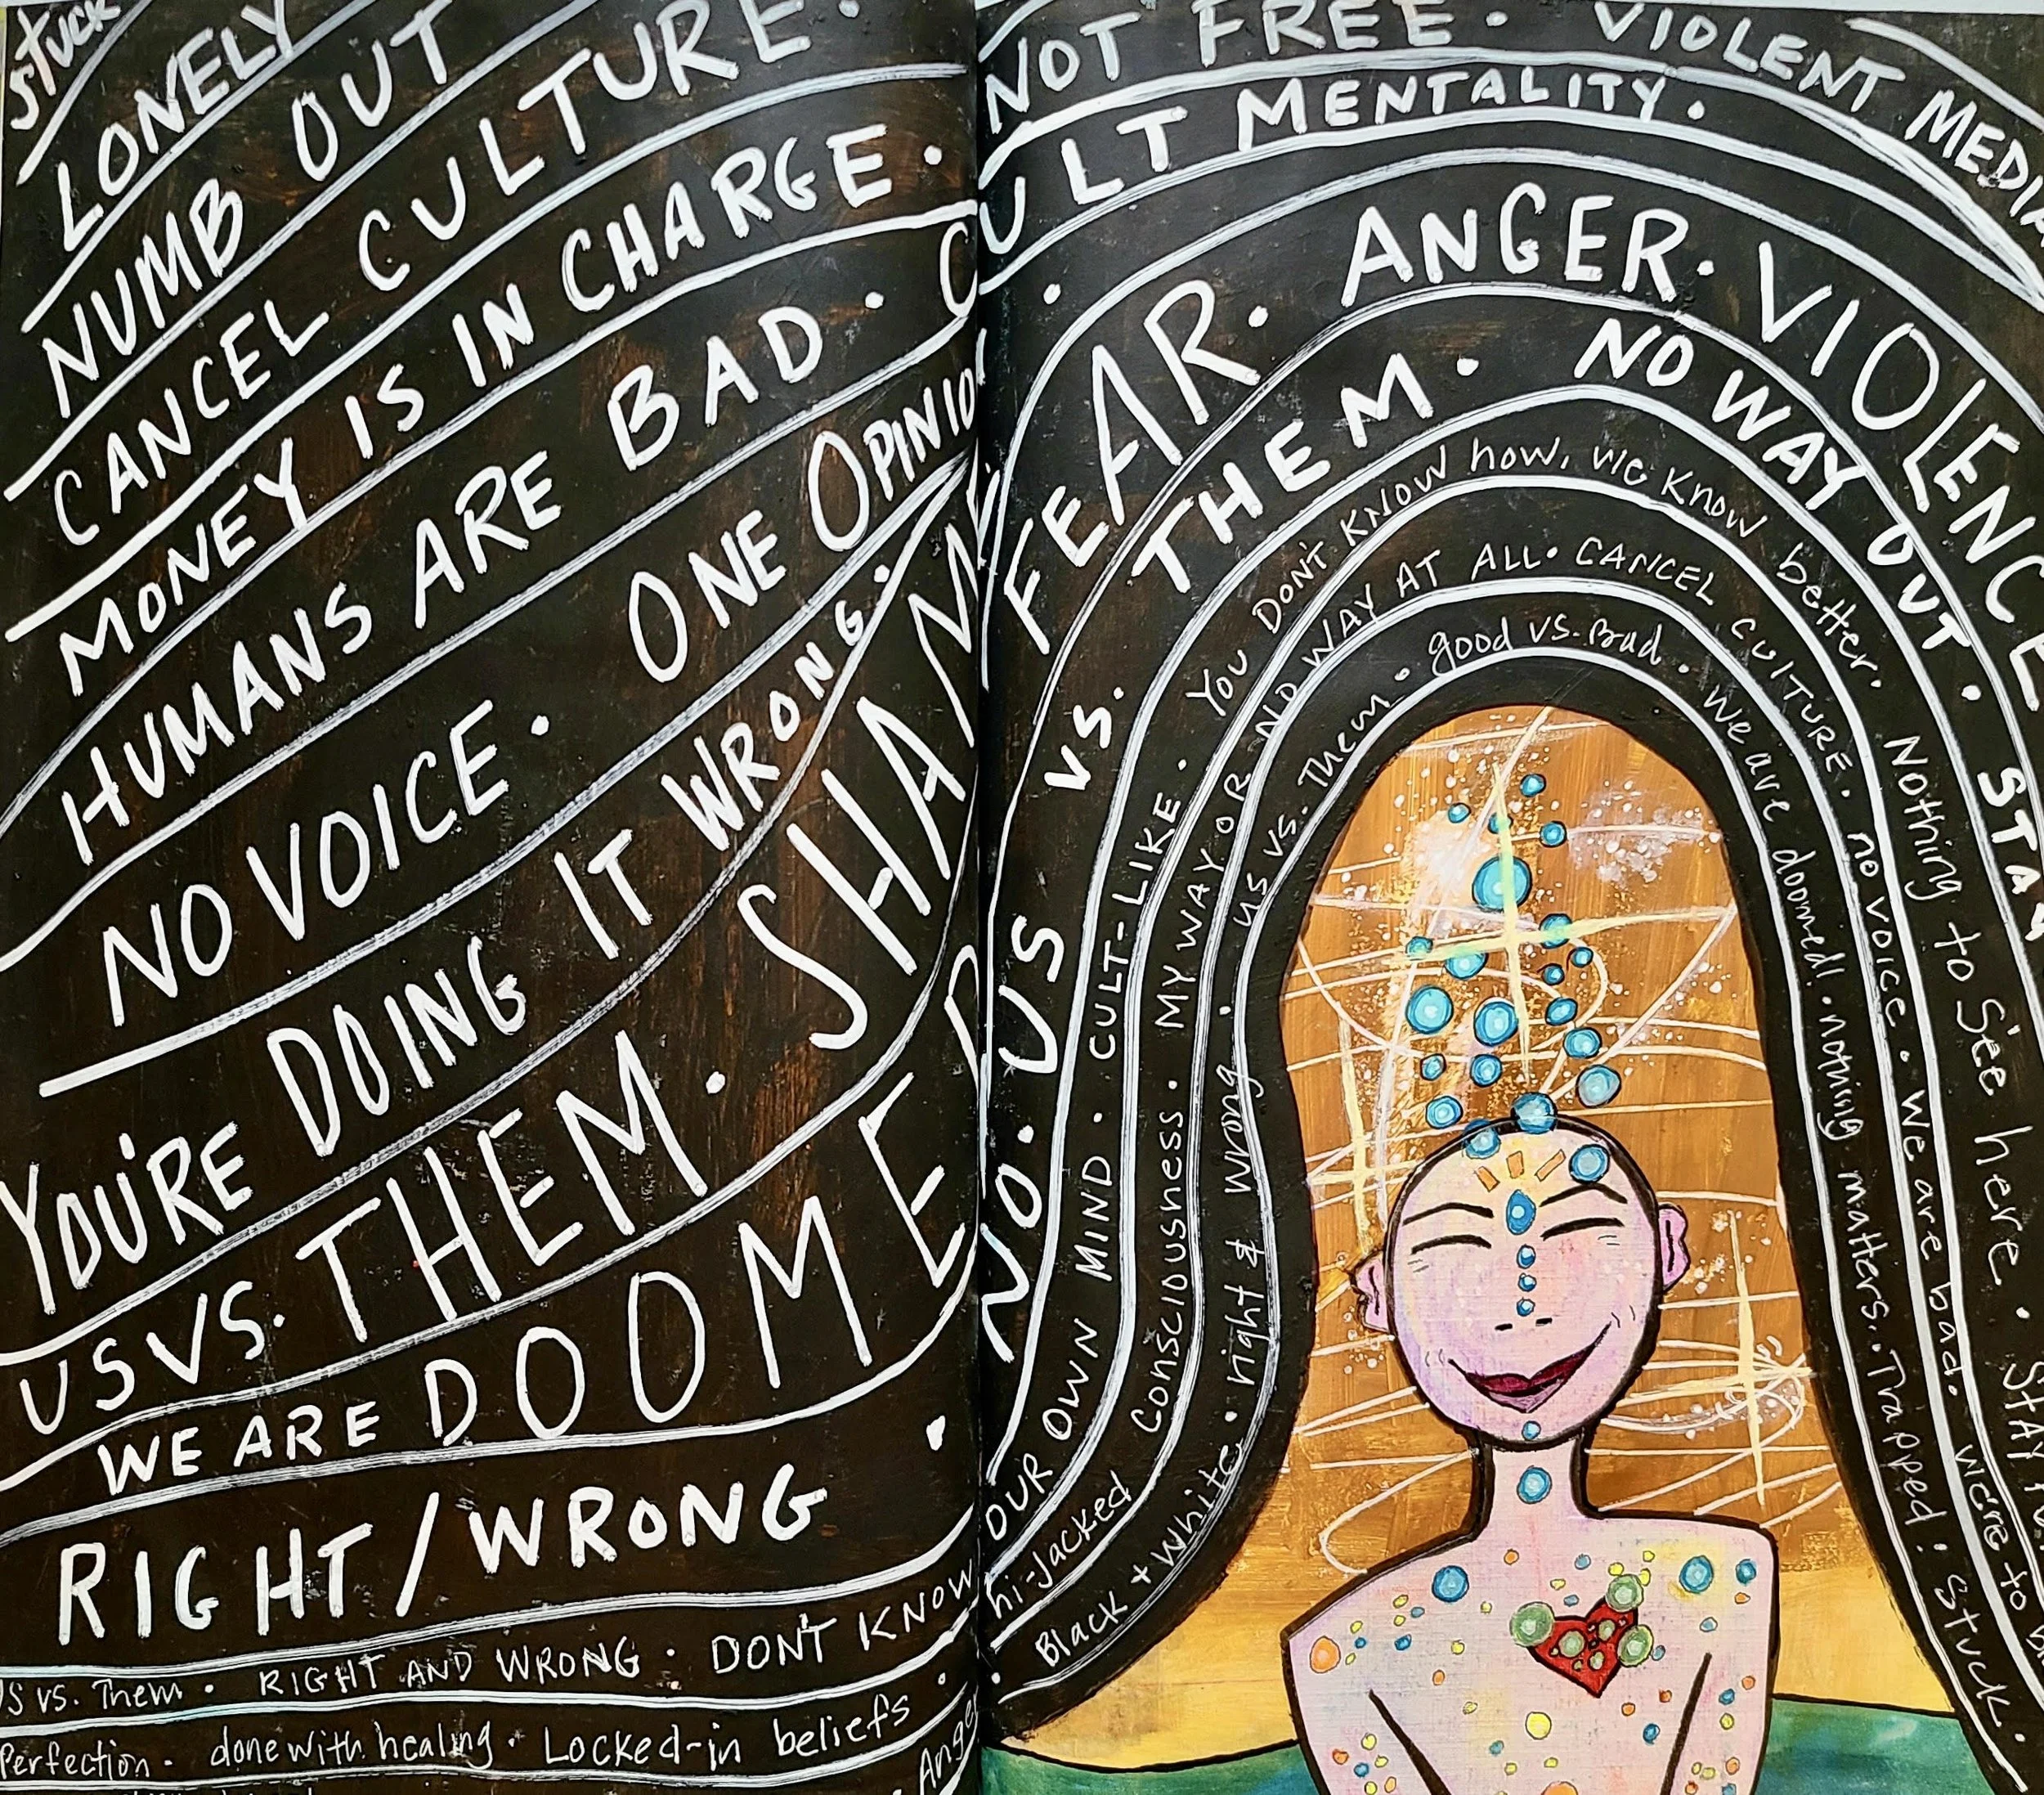 stuck
LONELY
NUMB OUT
CANCEL CULTURE.
MONEY IS IN CHARGE.
HUMANS ARE BAD. CULT MENTALITY.
NO VOICE. ONE OPINIO
YOU'RE DOING IT WRONG.
US VS. THEM. SHAME
WE ARE DOOMED
RIGHT/WRONG.
US vs. Them. RIGHT AND WRONG. DON'T KNOW OUR OWN MIND. CULT-LIKE. You DON'T KNOW how, we know better.
Perfection. done with healing. Locked-in beliefs. hi-jacked Consciousness. MY WAY OR NO WAY AT ALL. CANCEL CULTURE. no voice. We are bad. We're to
Ange
Black + white. right & wrong. us vs. Them. good vs. Bad. We are doomed! nothing matters. Trapped! Stuck.
NOT FREE. VIOLENT MEDIA
FEAR. ANGER. VIOLENCE
NO. US vs. THEM. NO WAY OUT. STA
Nothing to see here.